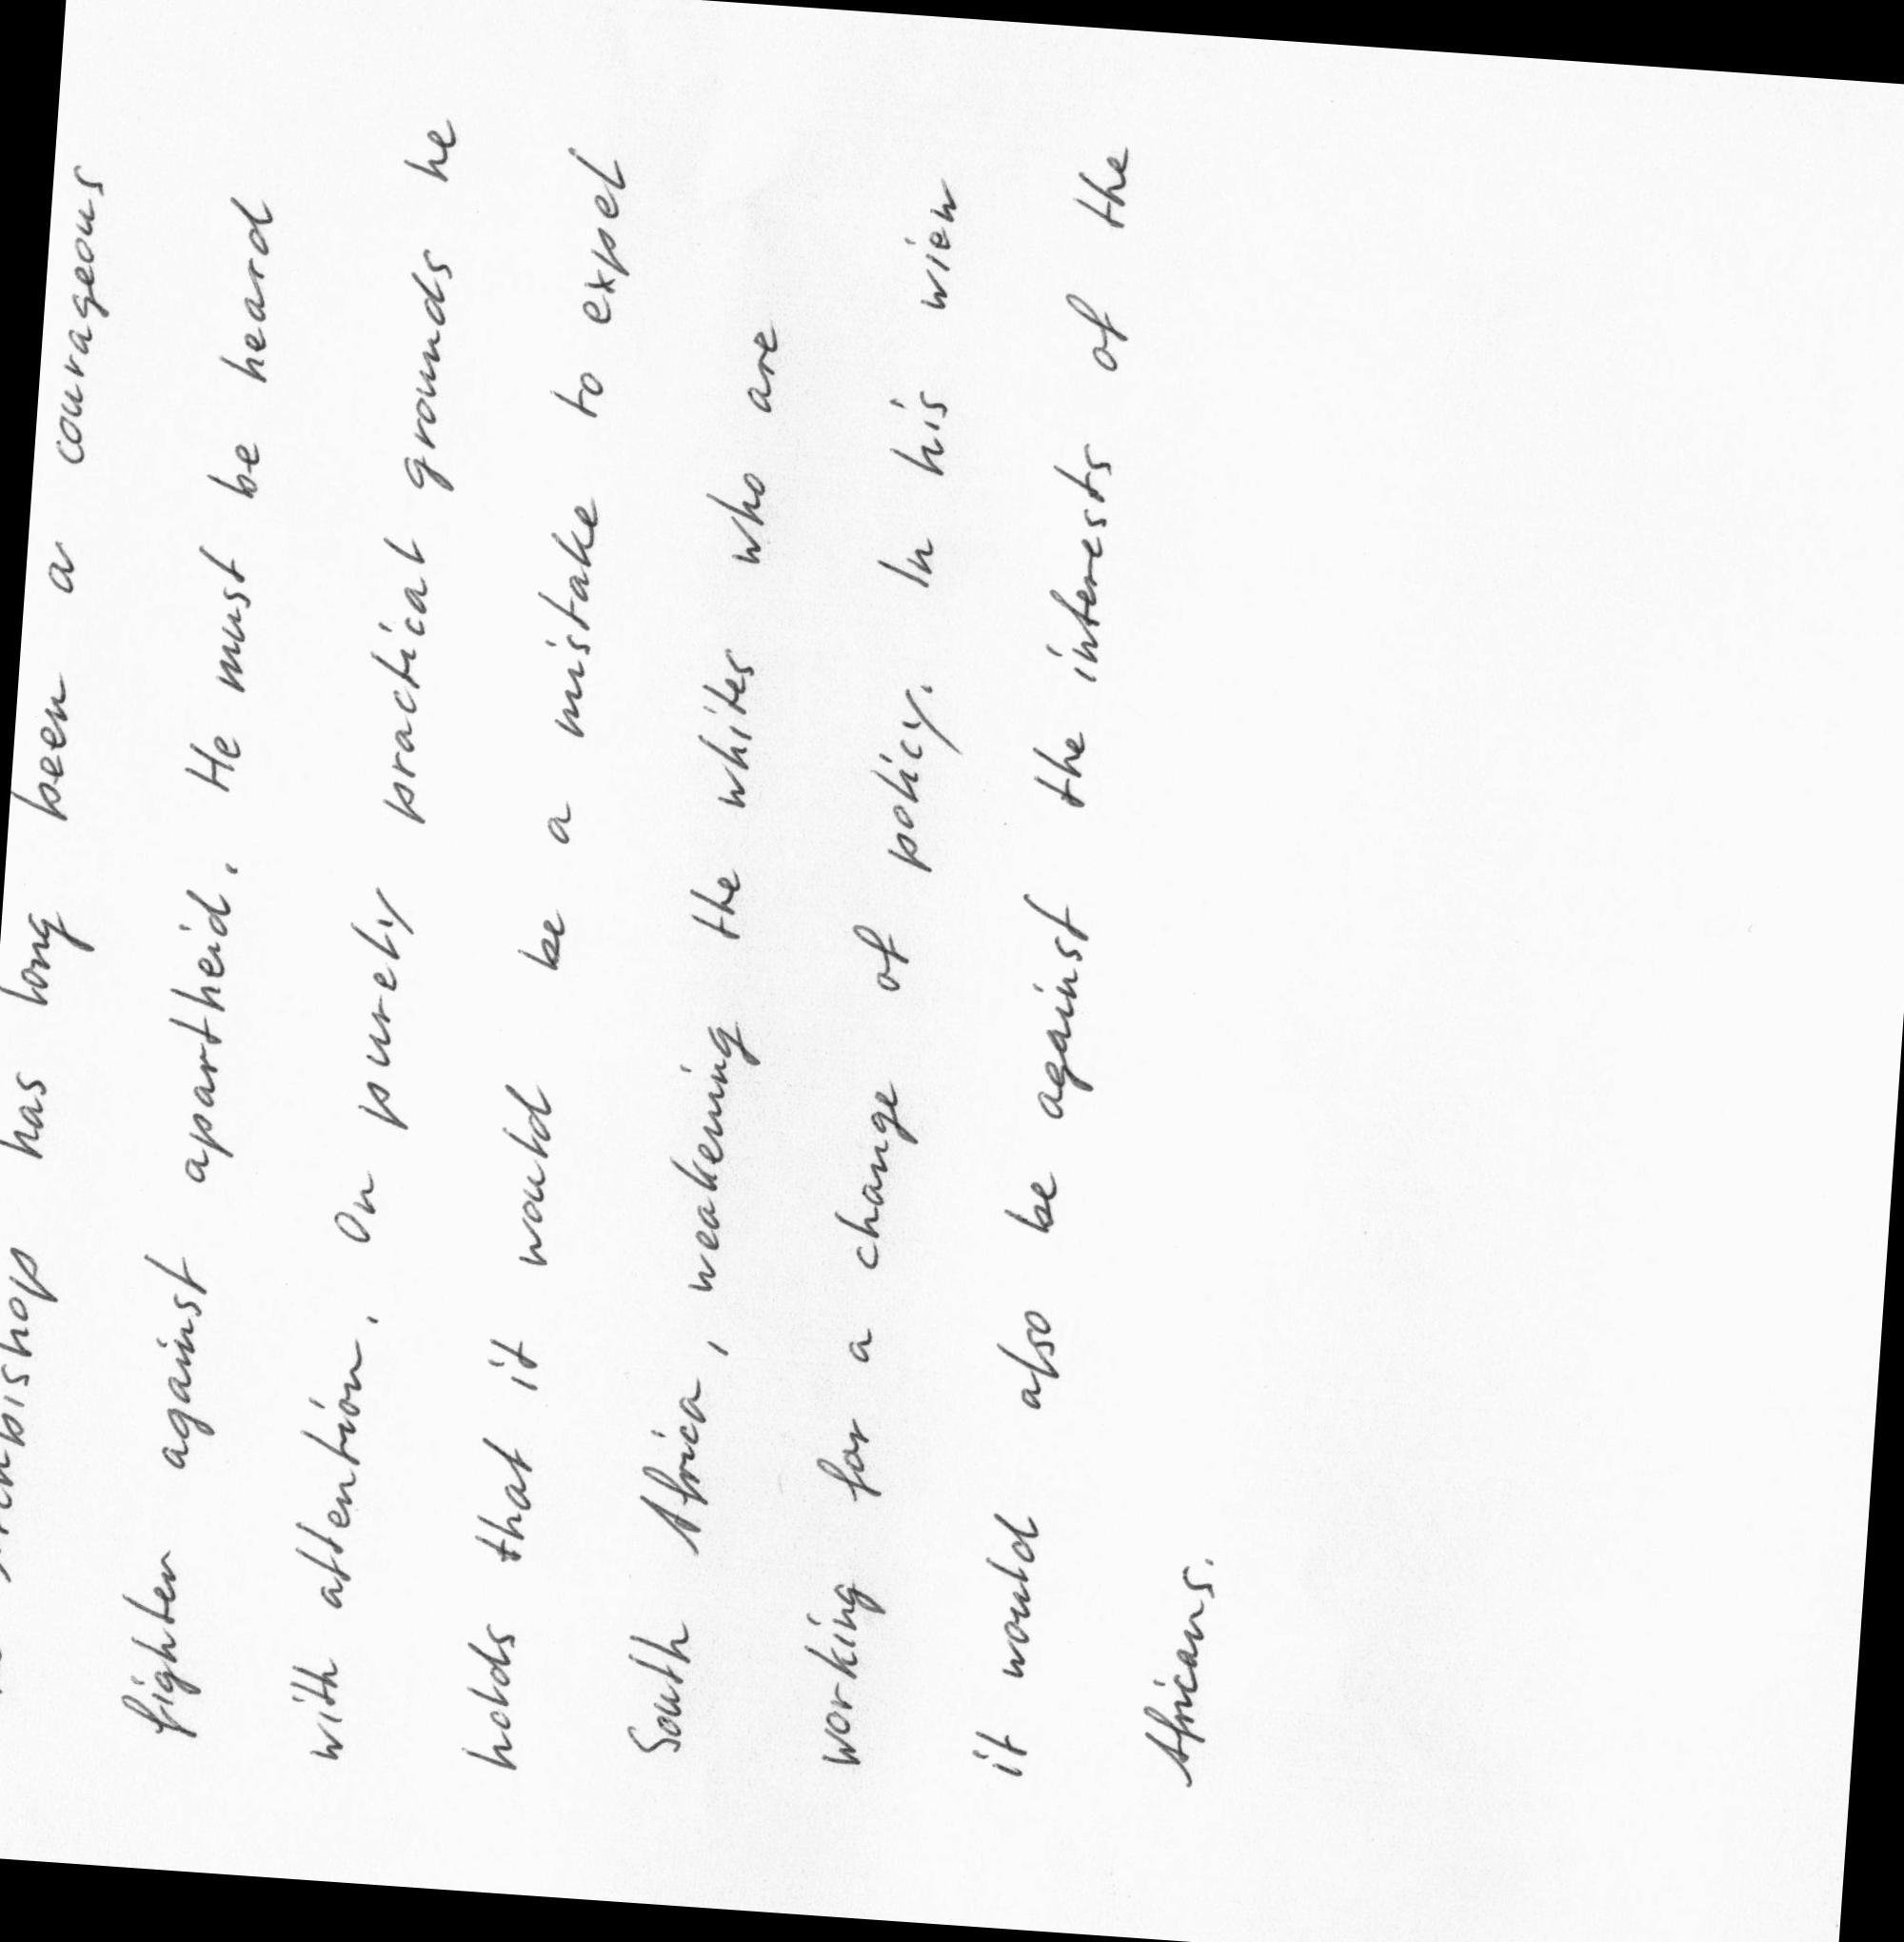 Archbishop has long been a courageous
fighter against apartheid. He must be heard
with attention. On purely practical grounds he
holds that it would be a mistake to expel
South Africa, weakening the whites who are
working for a change of policy. In his view
it would also be against the interests of the
Africans.